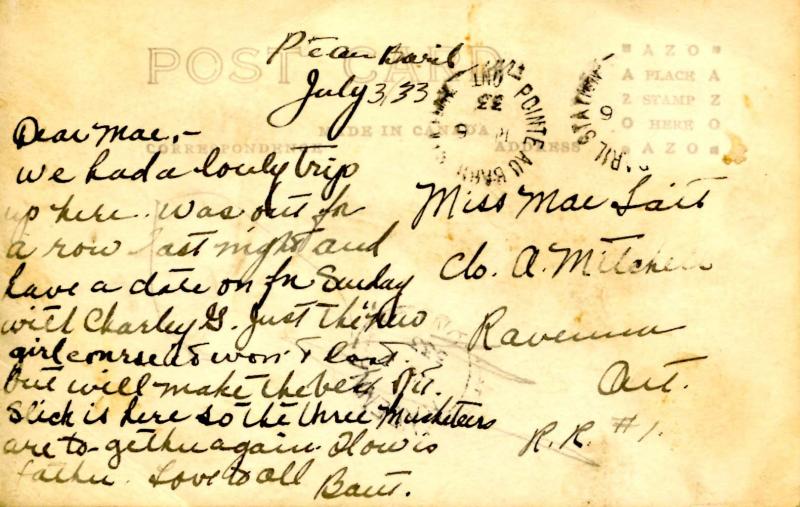 POST CARD
Pte au Baril
July 3/33
POINTE AU BARIL STATION
ONT
33
RIL STATION
6
AZO
A PLACE A
Z STAMP Z
O HERE O
AZO
MADE IN CANADA
CORRESPONDENCE
ADDRESS
Dear Mae,-
we had a lovly trip
up here. Was out for
a row last night and
have a date on for Sunday
with Charley G. Just the new
girl course it won't last.
but will make the best of it.
Slick is here so the three Musketeers
are to-gether again. How is
father. Love to all
Miss Mae
c/o. A. Mitchell
Ravenna
Ont.
R.R. #1.